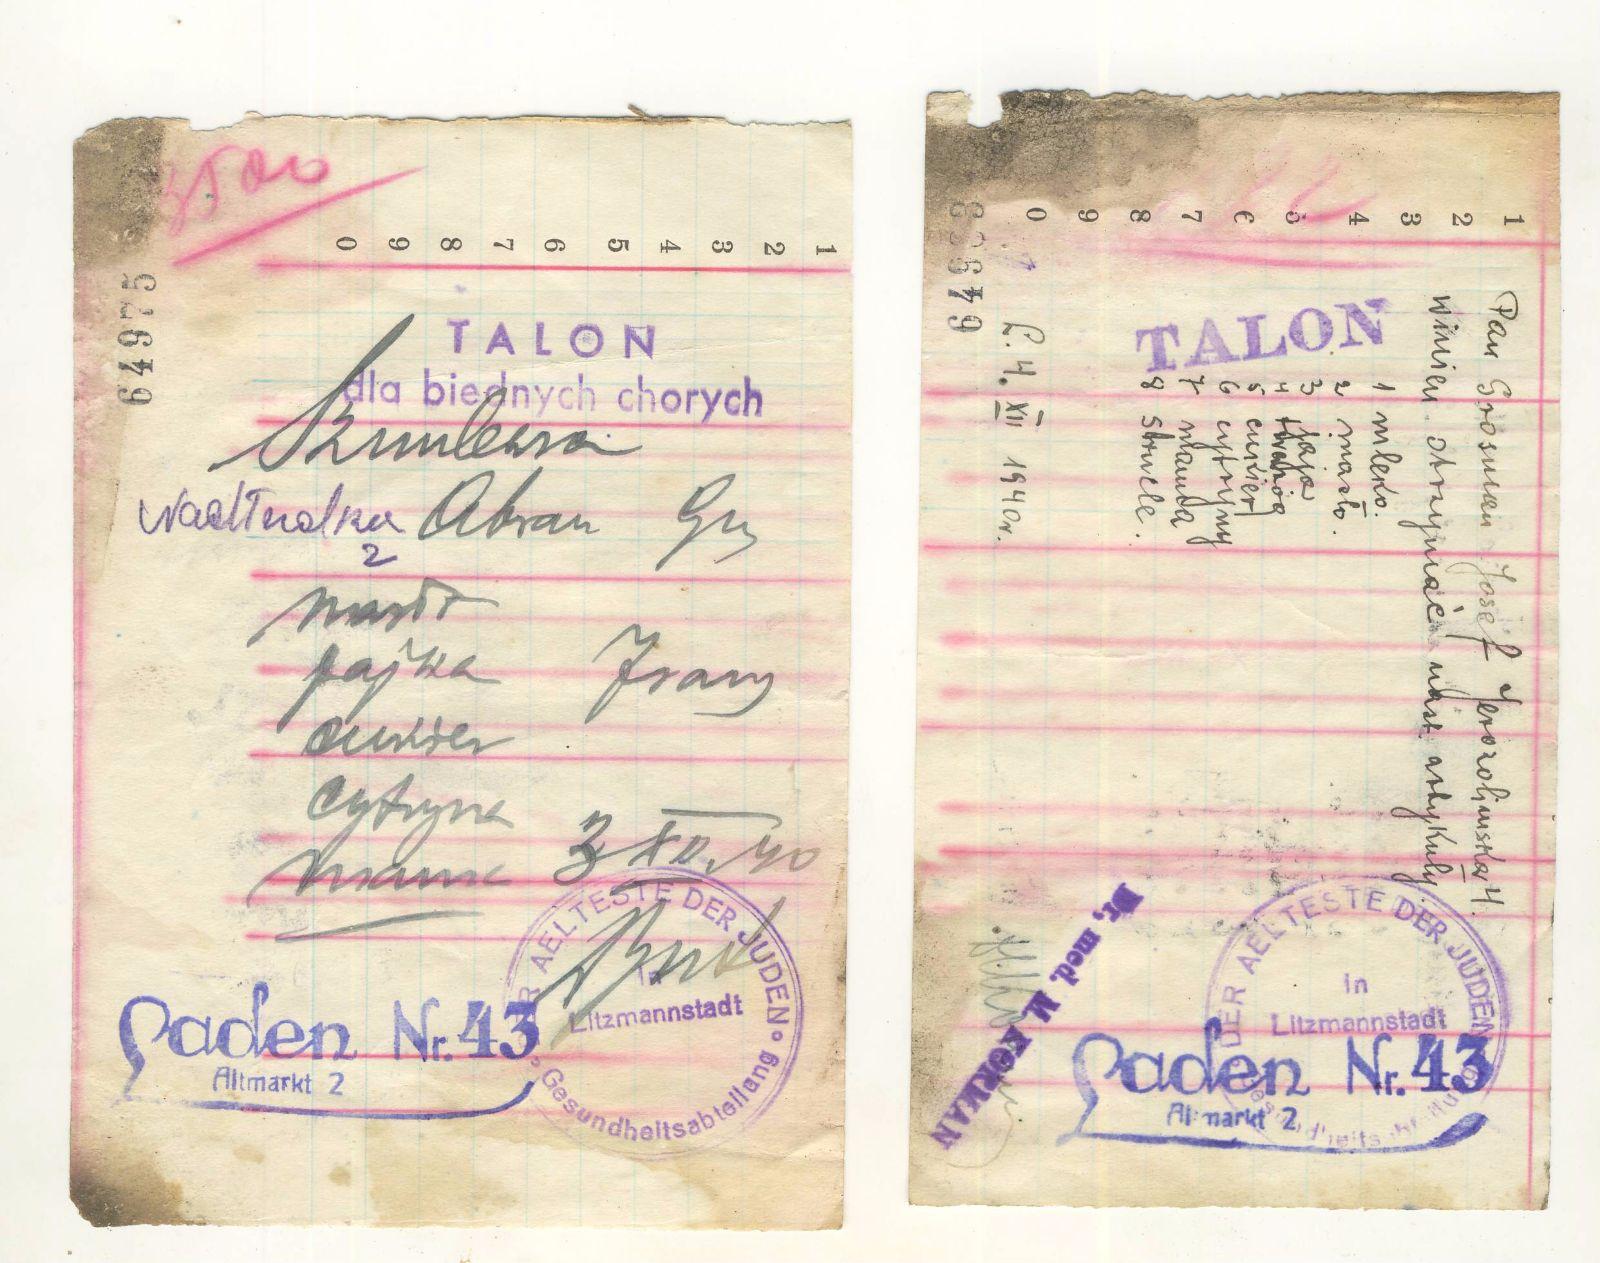 64975
0 9 8 7 6 5 4 3 2 1
TALON
dla biednych chorych
Abram
2
masło
jajka
cukier
cytryna
manna
3 XII. 40
DER AELTESTE DER JUDEN
in
Litzmannstadt
Gesundheitsabteilung
Laden Nr. 43
Altmarkt 2
0 9 8 7 6 5 4 3 2 1
TALON
Pan Grosman Josef Jerozolimska 4.
winien otrzymać nast. artykuły
1 mleko.
2 masło.
3 jaja
4
5 cukier
6 cytryny
7 manna
8 strucle.
Ł. 4. XII 1940r.
Dr. med. M. KORMAN
DER AELTESTE DER JUDEN
in
Litzmannstadt
Gesundheitsabteilung
Laden Nr. 43
Altmarkt 2